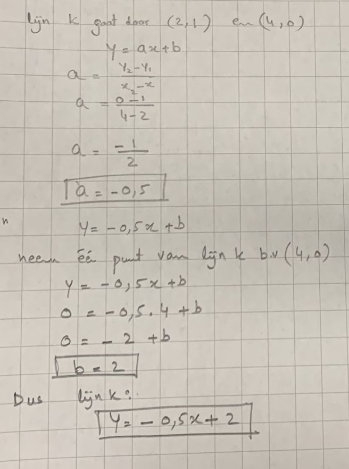 lijn k gaat door (2,1) en (4,0)
y = ax+b
a = y₂-y₁ / x₂-x
a = 0-1 / 4-2
a = -1 / 2
a = -0,5
n
y = -0,5x + b
neem één punt van lijn k b.v (4,0)
y = -0,5x + b
0 = -0,5.4 + b
0 = -2 + b
b = 2
Dus lijn k:
y = -0,5x + 2